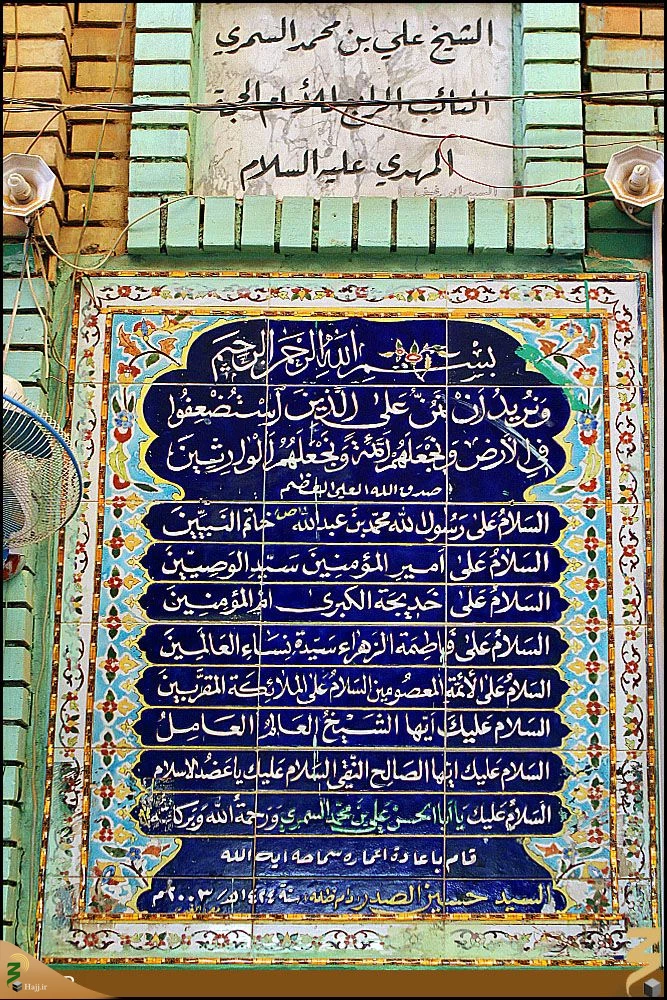 الشيخ علي بن محمد السمري
النائب الرابع للأمام الحجة
المهدي عليه السلام
بِسْمِ اللهِ الرَّحْمنِ الرَّحِيمِ
وَنُرِيدُ اَنْ نَمُنَّ عَلَى الَّذِينَ اسْتُضْعِفُوا
فِي الْاَرْضِ وَنَجْعَلَهُمْ اَئِمَّةً وَنَجْعَلَهُمُ الْوارِثِينَ
صدق الله العلي العظيم
السَّلامُ عَلى رَسُولِ اللهِ مُحَمَّدِ بْنِ عَبْدِ اللهِ ص خاتَمِ النَّبِيِّينَ
السَّلامُ عَلى اَميرِ المُؤمِنِينَ سَيِّدِ الوَصِيّينَ
السَّلامُ عَلى خَديجَة الكُبرى اُمِّ المُؤمِنين
السَّلامُ عَلى فاطِمَة الزَهراء سَيّدة نِساءِ العالَمينَ
السَّلامُ عَلى الأئمّة المَعصُومين السَلامُ عَلى المَلائِكَة المُقَرَّبينَ
السَّلامُ عَلَيكَ اَيّها الشَيْخُ العالِمُ العامِلُ
السَلامُ عَليك ايّها الصّالح التّقي السَلام عَليك يا عَضُد الاسلام
السَلامُ عَليك يا اَبا الحسن علي بن محمد السمري وَرَحمةُ الله وَبَركاته
قام باعادة اعماره سماحة اية الله
السيد حسين الصدر دام ظله، سنة ١٤٢٤هـ ٢٠٠٣م
Hajj.ir